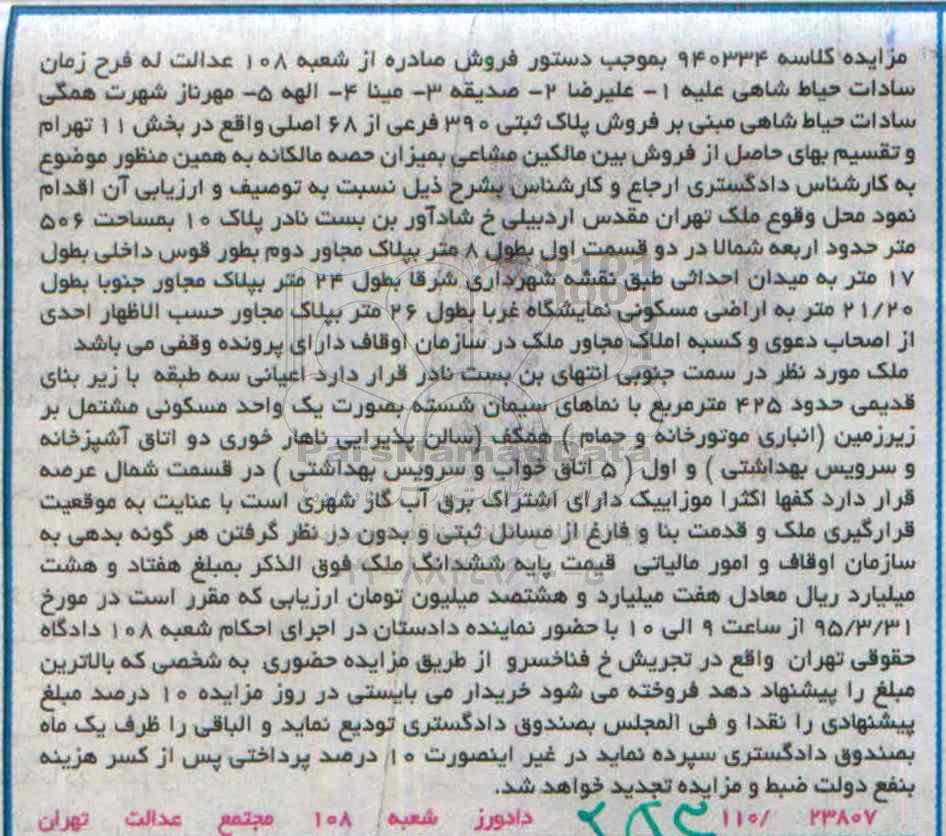 مزایده کلاسه ۹۴۰۳۳۴ بموجب دستور فروش صادره از شعبه ۱۰۸ عدالت له فرح زمان
سادات حیاط شاهی علیه ۱- علیرضا ۲- صدیقه ۳- مینا ۴- الهه ۵- مهرناز شهرت همگی
سادات حیاط شاهی مبنی بر فروش پلاک ثبتی ۳۹۰ فرعی از ۶۸ اصلی واقع در بخش ۱۱ تهرام
و تقسیم بهای حاصل از فروش بین مالکین مشاعی بمیزان حصه مالکانه به همین منظور موضوع
به کارشناس دادگستری ارجاع و کارشناس بشرح ذیل نسبت به توصیف و ارزیابی آن اقدام
نمود محل وقوع ملک تهران مقدس اردبیلی خ شادآور بن بست نادر پلاک ۱۰ بمساحت ۵۰۶
متر حدود اربعه شمالا در دو قسمت اول بطول ۸ متر بپلاک مجاور دوم بطور قوس داخلی بطول
۱۷ متر به میدان احداثی طبق نقشه شهرداری شرقا بطول ۲۴ متر بپلاک مجاور جنوبا بطول
۲۱/۲۰ متر به اراضی مسکونی نمایشگاه غربا بطول ۲۶ متر بپلاک مجاور حسب الاظهار احدی
از اصحاب دعوی و کسبه املاک مجاور ملک در سازمان اوقاف دارای پرونده وقفی می باشد
ملک مورد نظر در سمت جنوبی انتهای بن بست نادر قرار دارد اعیانی سه طبقه با زیر بنای
قدیمی حدود ۴۲۵ مترمربع با نماهای سیمان شسته بصورت یک واحد مسکونی مشتمل بر
زیرزمین (انباری موتورخانه و حمام) همکف (سالن پذیرایی ناهار خوری دو اتاق آشپزخانه
و سرویس بهداشتی) و اول (۵ اتاق خواب و سرویس بهداشتی) در قسمت شمال عرصه
قرار دارد کفها اکثرا موزاییک دارای اشتراک برق آب گاز شهری است با عنایت به موقعیت
قرارگیری ملک و قدمت بنا و فارغ از مسائل ثبتی و بدون در نظر گرفتن هر گونه بدهی به
سازمان اوقاف و امور مالیاتی قیمت پایه ششدانگ ملک فوق الذکر بمبلغ هفتاد و هشت
میلیارد ریال معادل هفت میلیارد و هشتصد میلیون تومان ارزیابی که مقرر است در مورخ
۹۵/۳/۳۱ از ساعت ۹ الی ۱۰ با حضور نماینده دادستان در اجرای احکام شعبه ۱۰۸ دادگاه
حقوقی تهران واقع در تجریش خ فناخسرو از طریق مزایده حضوری به شخصی که بالاترین
مبلغ را پیشنهاد دهد فروخته می شود خریدار می بایستی در روز مزایده ۱۰ درصد مبلغ
پیشنهادی را نقدا و فی المجلس بصندوق دادگستری تودیع نماید و الباقی را ظرف یک ماه
بصندوق دادگستری سپرده نماید در غیر اینصورت ۱۰ درصد پرداختی پس از کسر هزینه
بنفع دولت ضبط و مزایده تجدید خواهد شد.
۲۳۸۰۷ /۱۱۰ دادورز شعبه ۱۰۸ مجتمع عدالت تهران
ParsNamadData